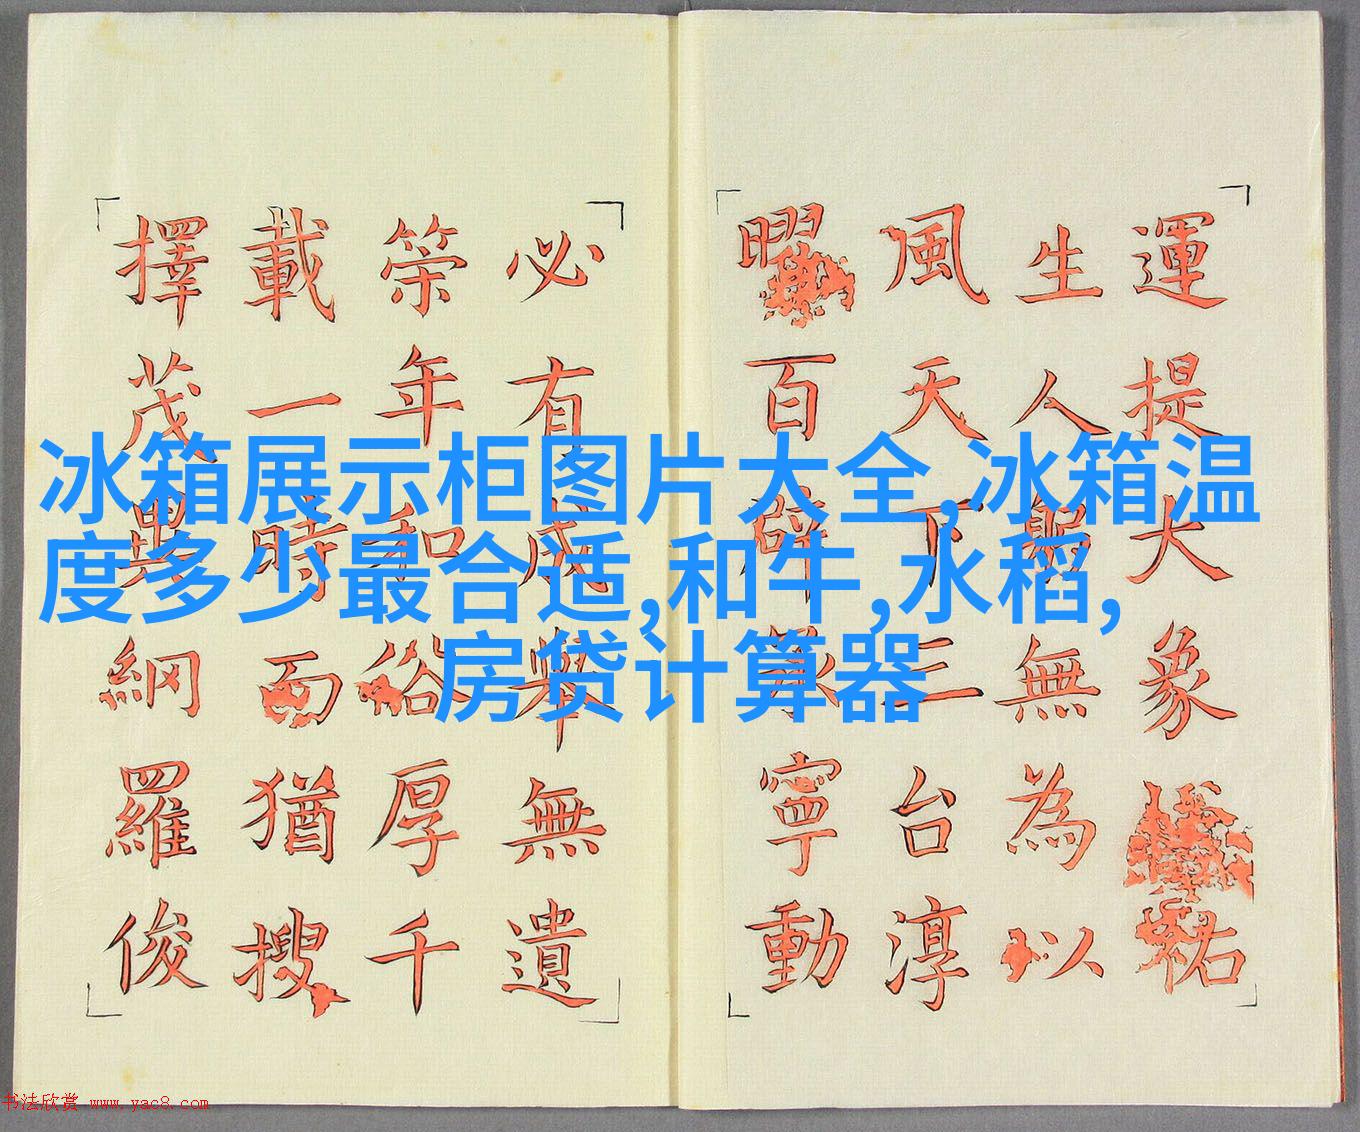 冰箱展示柜图片大全,冰箱温
度多少最合适,和牛,水稻,
房贷计算器
運提大象祐
生人聖無為以
風天下三台淳
曜百辟承寧動
必有成舉無遺
筞年和俗厚千
載一時而猶搜
擇茂異網羅俊
书法欣赏 www.yac8.com